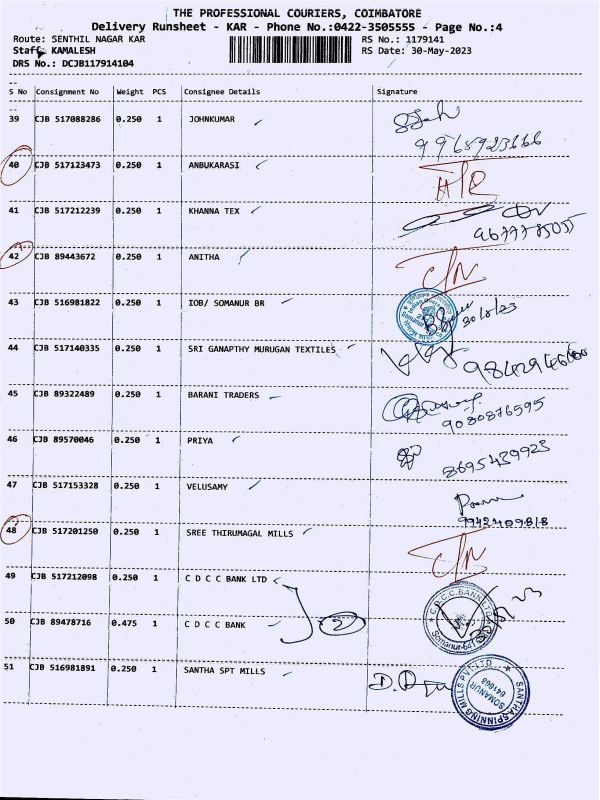 THE PROFESSIONAL COURIERS, COIMBATORE
Delivery Runsheet - KAR - Phone No.:0422-3505555 - Page No.:4
Route: SENTHIL NAGAR KAR RS No.: 1179141
Staff: KAMALESH RS Date: 30-May-2023
DRS No.: DCJB117914104
S No Consignment No Weight PCS Consignee Details Signature
39 CJB 517088286 0.250 1 JOHNKUMAR
9965923666
40 CJB 517123473 0.250 1 ANBUKARASI
41 CJB 517212239 0.250 1 KHANNA TEX
9677785055
42 CJB 89443672 0.250 1 ANITHA C/N
43 CJB 516981822 0.250 1 IOB/ SOMANUR BR
44 CJB 517140335 0.250 1 SRI GANAPTHY MURUGAN TEXTILES
45 CJB 89322489 0.250 1 BARANI TRADERS
9080876595
46 CJB 89570046 0.250 1 PRIYA
8695439923
47 CJB 517153328 0.250 1 VELUSAMY
9942409818
48 CJB 517201250 0.250 1 SREE THIRUMAGAL MILLS C/N
49 CJB 517212098 0.250 1 C D C C BANK LTD
50 CJB 89478716 0.475 1 C D C C BANK 2
51 CJB 516981891 0.250 1 SANTHA SPT MILLS
SANTHA SPINNING MILLS PVT. LTD
SOMANUR
641668